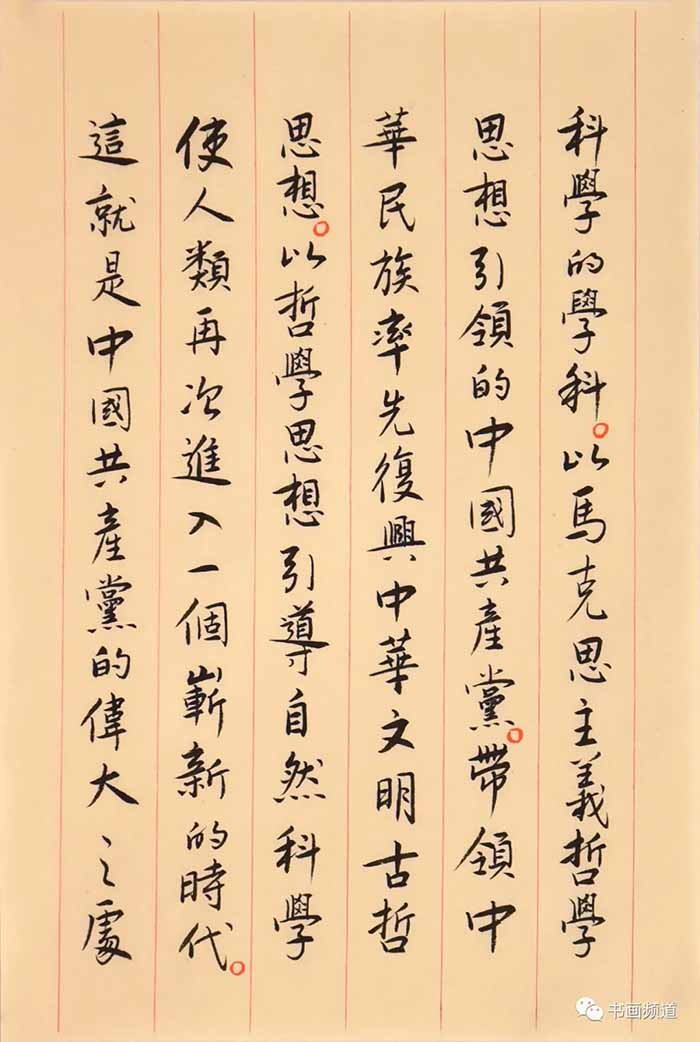 科學的學科。以馬克思主義哲學
思想引領的中國共產黨。帶領中
華民族率先復興中華文明古哲
思想。以哲學思想引導自然科學
使人類再次進入一個嶄新的時代。
這就是中國共產黨的偉大之處
书画频道